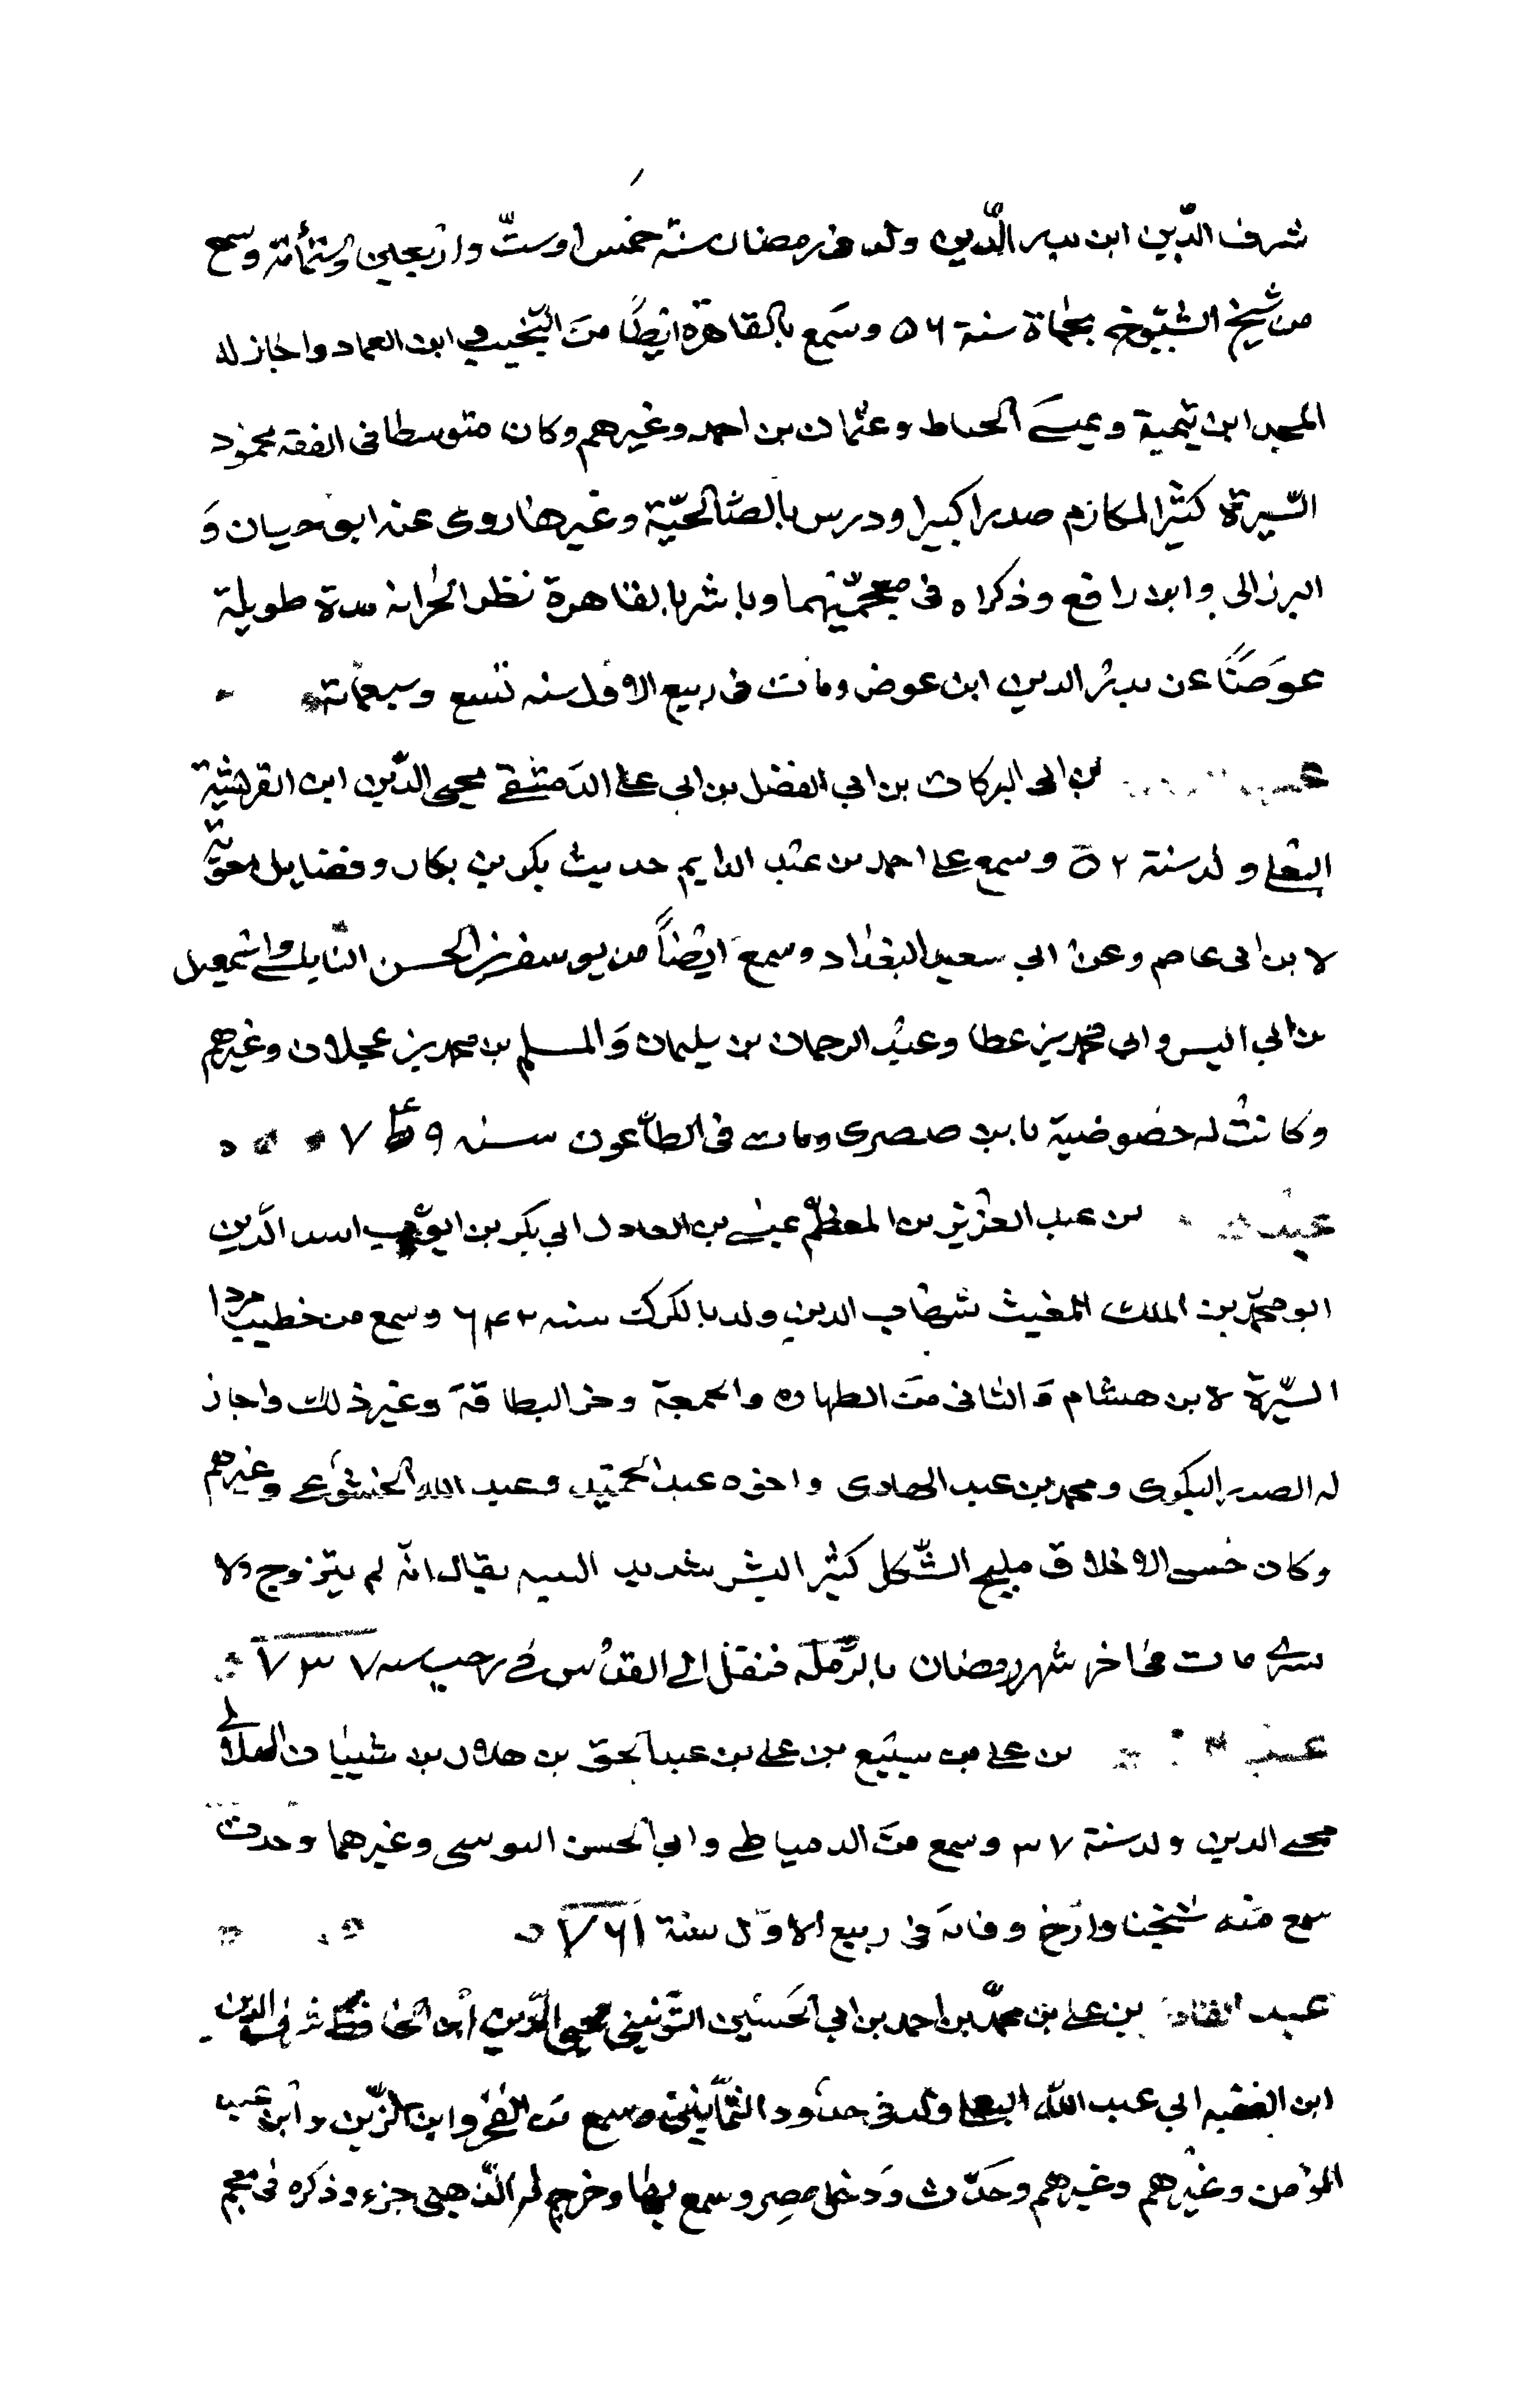 شرف الدّين ابن بدر الدّين ولد فى رمضان سنة خمس او ستّ واربعين وستمأئة وسمع
من شيخ الشيوخ بحماة سنة ٥٦ وسمع بالقاهرة ايضًا منَ النّجيب ابن العماد واجاز له
المجد ابن تيمية وعيسَى الخياط وعثمان بن احمد وغيرهم وكان متوسطا فى الفقه محمود
السّيرة كثير المكارم صدرا كبيرا ودرس بالصّالحيّة وغيرها روى عنه ابو حيان وَ
البرزالى وابن رافع وذكراه فى معجميّهما وباشر بالقاهرة نظر الخزانه مدة طويلة
عوضًا عن بدر الدين ابن عوض ومات فى ربيع الاول سنه تسع وسبعمائة
بن ابى البركات بن ابي الفضل بن ابى على الدمشقى محيى الدّين ابن القرشية
البعلى ولد سنة ٥٢ وسمع على احمد بن عبد الدايم حديث بكر بن بكار وفضايل
لابن ابى عاصم وعن ابي سعيد البغداد وسمع ايضًا من يوسف بن الحسن النابلسى واسمعيل
بن ابي اليسر وابى محمد بن عطا وعبد الرحمان بن سليمان وَالمسلم بن محمد بن عجلان وغيرهم
وكانت له خصوصية بابن صصرى ومات فى الطاعون سنه ٧٤٩
عبد بن عبد العزيز بن المعظّم عيسى بن العادل ابي بكر بن ايوب اسد الدّين
ابو محمّد بن الملك المغيث شهاب الدين ولد بالكرك سنه ٦٤٢ وسمع من خطيب مردا
السّيرة لابن هشام وَالثانى منَ الطهاره والجمعة وجز البطاقةَ وغير ذلك واجاز
له الصدر البكرى ومحمد بن عبد الهادى واخوه عبد الحميد وعبد الله الخشوعى وغيرهم
وكان حسن الاخلاق مليح الشّكل كثير البشر شديد البنيه يقال انّه لم يتزوج ولا
تسرى مات فى اخر شهر رمضان بالرّملَه فنقل الى القدُس فى رجب سنه ٧٣٧
بن على بن سبيع بن على بن عبد الحق بن هلال بن شيبان الهلالى
محيى الدين ولد سنة ٣٧ وسمع منَ الدمياطى وابي الحسن وغيرهما وحدث
سمع منه شيخنا وارّخ وفاته فى ربيع الاوّل سنة ٧٦١
عبد القادر بن على بن محمّد بن احمد بن ابي الحَسين اليونينى محيى الدّين ابن الحافظ شرف الدين
ابن الفقيه ابي عبد اللّه البعلى ولد فى حدود الثمانين وسمع من الفخر وابن الزّين وابن عبد
المؤمن وغيرهم وغيرهم وحَدّث وَدخل مصر وسمع بها وخرج له الذّهبى جزء وذكره فى معجم